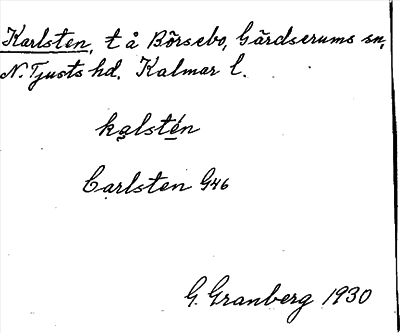 Karlsten, t å Börsebo, Gärdserums sn,
N. Tjusts hd. Kalmar l.
kạlstén
Carlsten G46
G. Granberg 1930